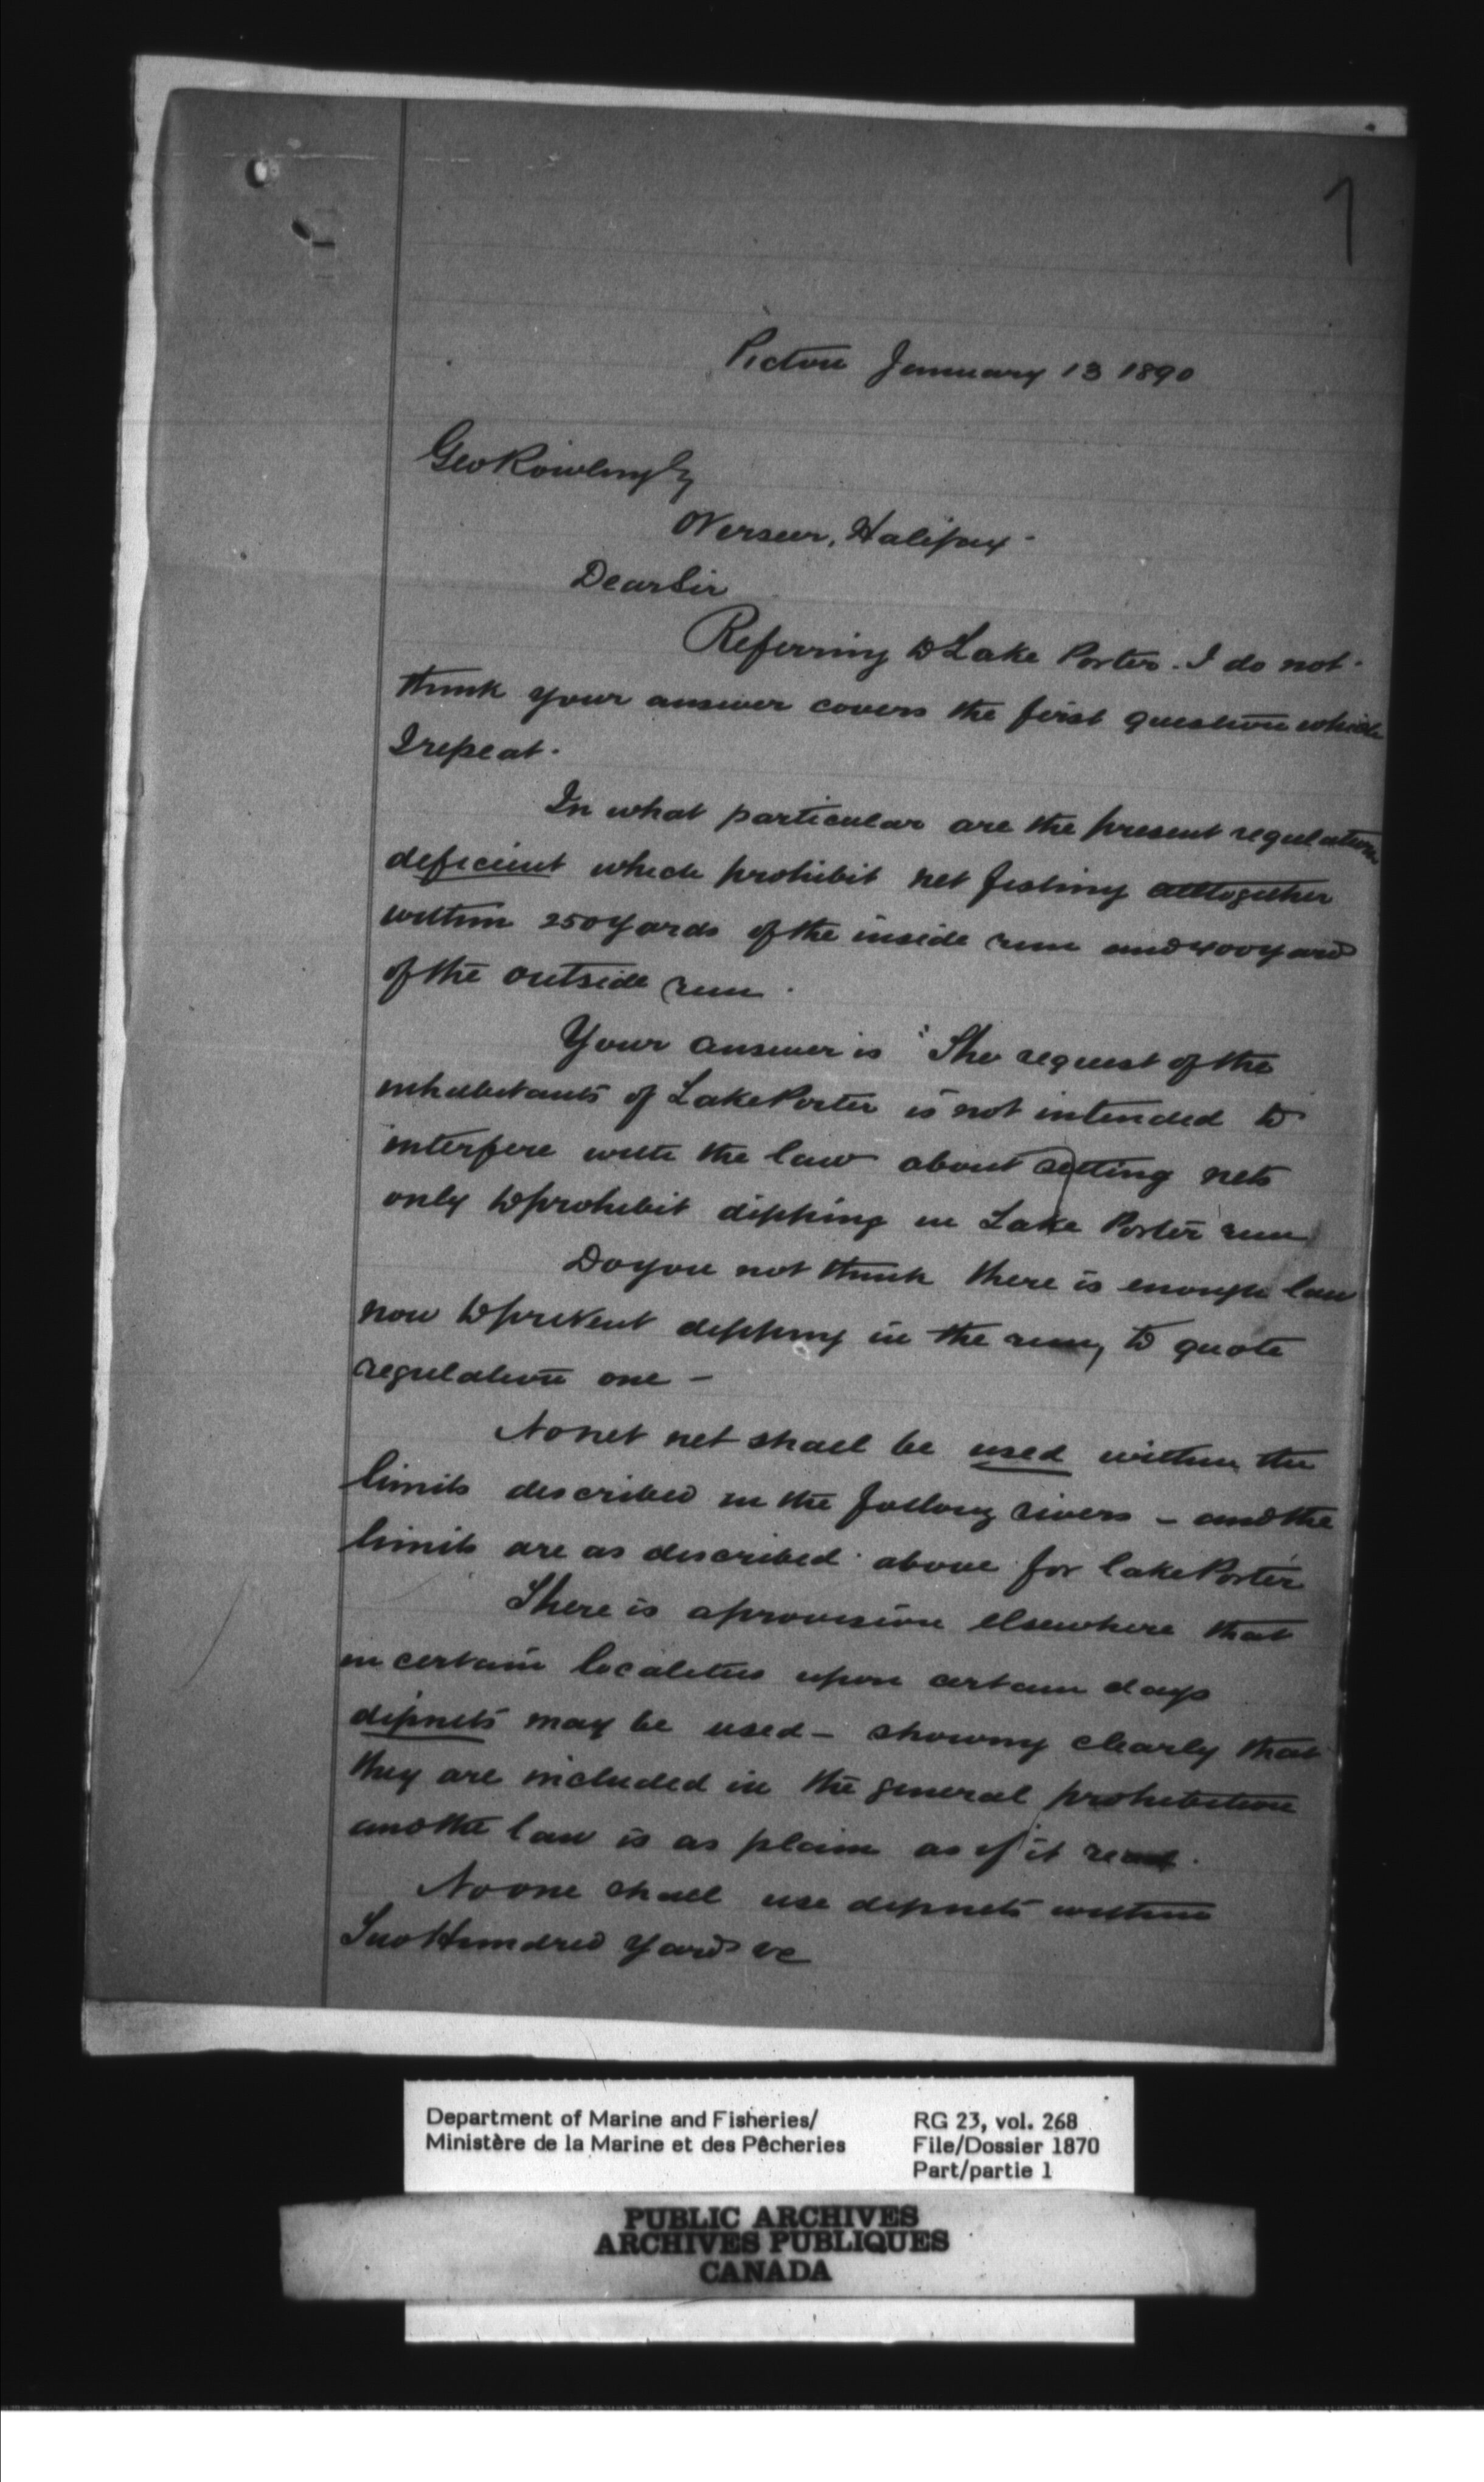 1
Pictou January 13 1890
Geo Rowlings Esq
Overseer, Halifax.
Dear Sir
Referring to Lake Porter. I do not
think your answer covers the first question which
I repeat.
In what particular are the present regulations
deficient which prohibit net fishing alltogether
within 250 yards of the inside run and 400 yards
of the outside run.
Your answer is "The request of the
inhabitants of Lake Porter is not intended to
interfere with the law about setting nets
only to prohibit dipping in Lake Porter run
Do you not think there is enough law
now to prevent dipping in the run, to quote
regulation one –
No net net shall be used within the
limits described in the follong rivers – and the
limits are as described above for lake Porter
There is a provision elsewhere that
in certain localities upon certain days
dipnets may be used – showing clearly that
they are included in the general prohibition
and the law is as plain as if it read.
No one shall use dipnets within
Two Hundred yards &c
Department of Marine and Fisheries/
Ministère de la Marine et des Pêcheries
RG 23, vol. 268
File/Dossier 1870
Part/partie 1
PUBLIC ARCHIVES
ARCHIVES PUBLIQUES
CANADA